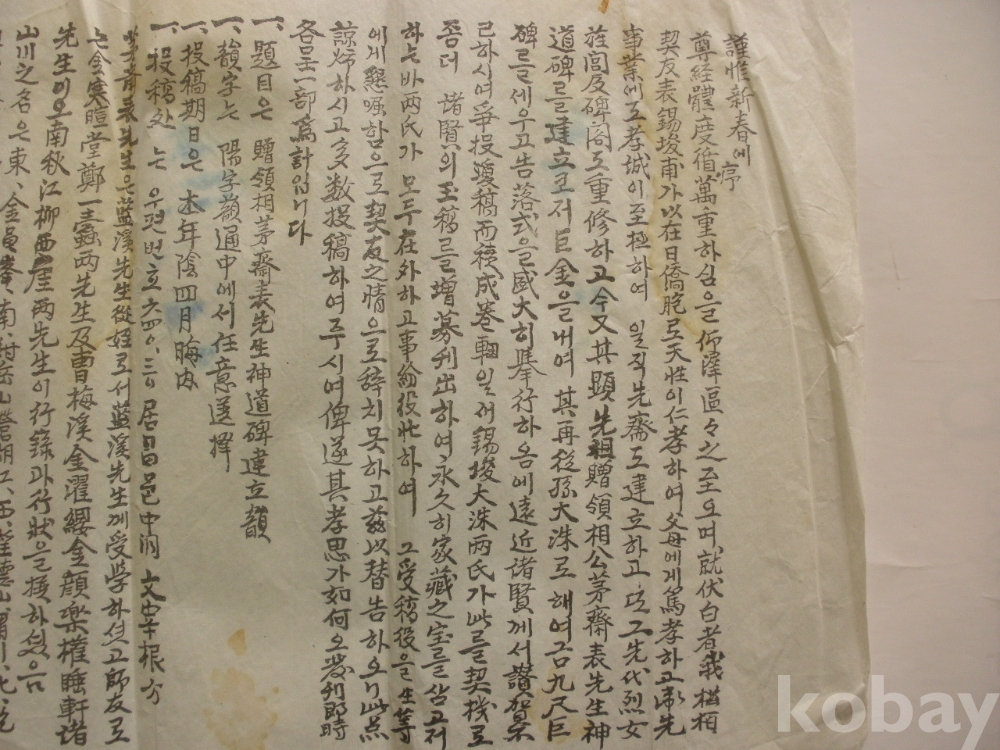 謹惟新春에
尊經體度循萬重하심을 仰溸區々之至오며 就伏白者 我松栢
契友表錫埈甫가 以在日僑胞로 天性이 仁孝하여 父母에게 篤孝하고 爲先
事業에도 孝誠이 至極하여 일직 先齋도 建立하고 또 그 先代 烈女
旌閭及碑閣도 重修하고 今又其顯先祖贈領相公茅齋表先生神
道碑를 建立코저 巨金을 내여 其再從孫大洙로 해여금 九尺巨
碑를 세우고 告落式을 盛大히 擧行하옴에 遠近諸賢께서 讚賀
已하시여 爭投瓊稿而積成卷軸일새 錫埈大洙兩氏가 此를 契機로
좀더 諸賢의 玉稿를 增募刊出하여 永久히 家藏之宝를 삼고저
하는바 兩氏가 모두 在外하고 事務役壯하여 그 受稿役을 生等
에게 懇囑함으로 契友之情으로 辞치 못하고 玆以替告하오니 此点
諒炤하시고 多數投稿하여 주시여 俾遂其孝思가 如何오 發刊卽時
各呈一部爲計임니다
一、題目은 贈領相茅齋表先生神道碑建立韻
一、韻字는 陽字韻通中에서 任意選擇
一、投稿期日은 本年陰四月晦內
一、投稿処는 우편번호 六四〇、三 居昌邑中洞 文宰根 方
茅齋表先生은 藍溪先生從姪로서 藍溪先生께 受學하셨고 師友로
는 金寒暄堂鄭一蠹兩先生及曺梅溪金濯纓金顏樂權睡軒諸
先生이오 南秋江柳西崖兩先生이 行錄과 行狀을 撰하셨음
山川之名은 東、金
kobay